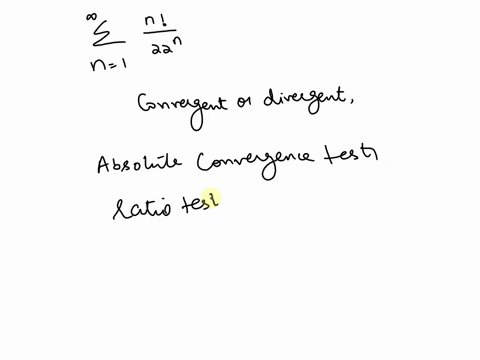 ∞
∑ n! / 22^n
n=1
Convergent or divergent,
Absolute Convergence test,
ratio test